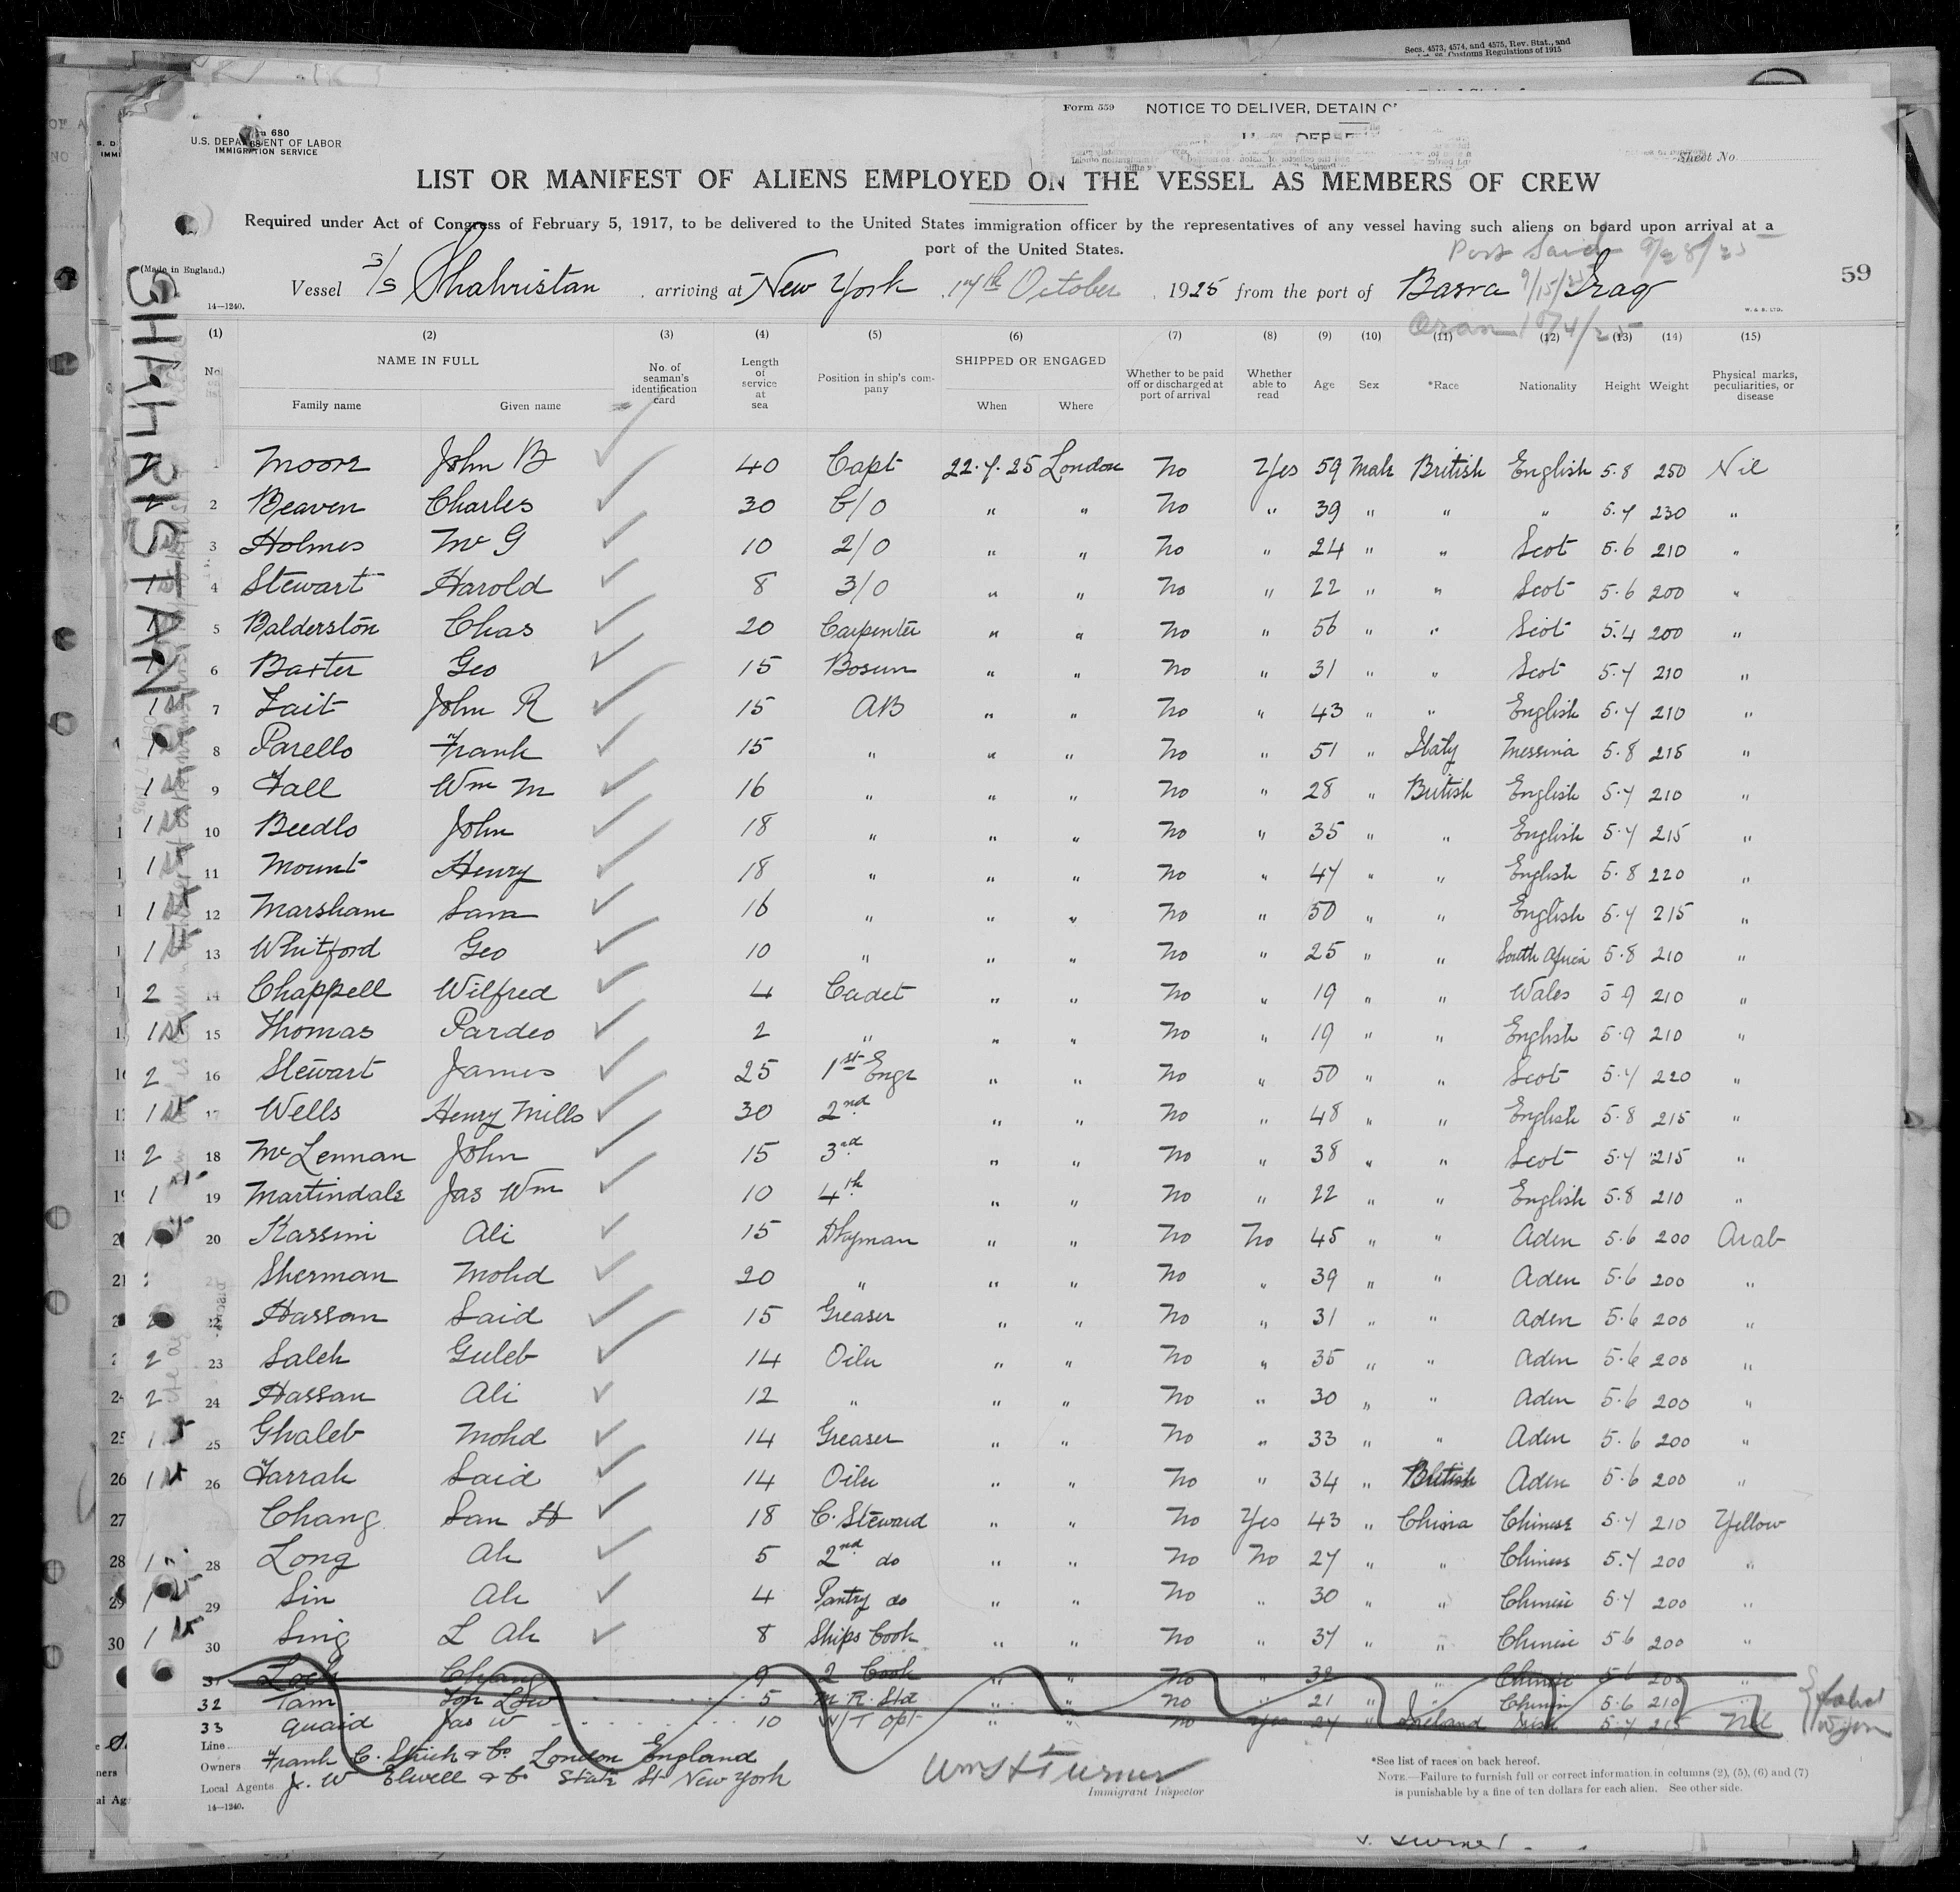 Secs. 4573, 4574, and 4575, Rev. Stat., and
Customs Regulations of 1915
Form 559 NOTICE TO DELIVER, DETAIN
680
U.S. DEPARTMENT OF LABOR
IMMIGRATION SERVICE
Sheet No.
LIST OR MANIFEST OF ALIENS EMPLOYED ON THE VESSEL AS MEMBERS OF CREW
Required under Act of Congress of February 5, 1917, to be delivered to the United States immigration officer by the representatives of any vessel having such aliens on board upon arrival at a
port of the United States.
Port Said 9/28/25
(Made in England.)
Vessel S/S Shahristan arriving at New York 17th October 1925 from the port of Basra 9/15/25 Iraq
59
14—1240.
W. & S. LTD.
Oran 10/4/25
SHAHRISTAN
(1) (2) (3) (4) (5) (6) (7) (8) (9) (10) (11) (12) (13) (14) (15)
No. list NAME IN FULL Family name Given name No. of seaman's identification card Length of service at sea Position in ship's company SHIPPED OR ENGAGED When Where Whether to be paid off or discharged at port of arrival Whether able to read Age Sex *Race Nationality Height Weight Physical marks, peculiarities, or disease
1 Moore John B 40 Capt 22.7.25 London No Yes 59 Male British English 5.8 250 Nil
2 Beaven Charles 30 C/O " " No " 39 " " " 5.7 230 "
3 Holmes Mc G 10 2/O " " No " 24 " " Scot 5.6 210 "
4 Stewart Harold 8 3/O " " No " 22 " " Scot 5.6 200 "
5 Balderston Chas 20 Carpenter " " No " 56 " " Scot 5.4 200 "
6 Baxter Geo 15 Bosun " " No " 31 " " Scot 5.7 210 "
7 Tait John R 15 AB " " No " 43 " " English 5.7 210 "
8 Parello Frank 15 " " " No " 51 " Italy Messina 5.8 215 "
9 Fall Wm M 16 " " " No " 28 " British English 5.7 210 "
10 Beedlo John 18 " " " No " 35 " " English 5.7 215 "
11 Mount Henry 18 " " " No " 47 " " English 5.8 220 "
12 Marsham Sam 16 " " " No " 50 " " English 5.7 215 "
13 Whitford Geo 10 " " " No " 25 " " South Africa 5.8 210 "
14 Chappell Wilfred 4 Cadet " " No " 19 " " Wales 5 9 210 "
15 Thomas Pardeo 2 " " " No " 19 " " English 5.9 210 "
16 Stewart James 25 1st Engr " " No " 50 " " Scot 5.7 220 "
17 Wells Henry Mills 30 2nd " " No " 48 " " English 5.8 215 "
18 McLennan John 15 3rd " " No " 38 " " Scot 5.7 215 "
19 Martindale Jas Wm 10 4th " " No " 22 " " English 5.8 210 "
20 Kassim Ali 15 Dkyman " " No No 45 " " Aden 5.6 200 Arab
Sherman Mohd 20 " " " No " 39 " " Aden 5.6 200 "
22 Hassan Said 15 Greaser " " No " 31 " " Aden 5.6 200 "
23 Saleh Guleb 14 Oiler " " No " 35 " " Aden 5.6 200 "
24 Hassan Ali 12 " " " No " 30 " " Aden 5.6 200 "
25 Ghaleb Mohd 14 Greaser " " No " 33 " " Aden 5.6 200 "
26 Farrah Said 14 Oiler " " No " 34 " British Aden 5.6 200 "
Chang San H 18 C. Steward " " No Yes 43 " China Chinese 5.7 210 Yellow
28 Long Ah 5 2nd do " " No No 27 " " Chinese 5.7 200 "
29 Sin Ah 4 Pantry do " " No " 30 " " Chinese 5.7 200 "
30 Sing L Ah 8 Ships Cook " " No " 37 " " Chinese 5 6 200 "
31 Chang 9 2 Cook " " No " 32 " " Chinese 5.6 200 "
32 Tam 5 " " No " 21 " " Chinese 5.6 210 "
33 Quaid Jas W 10 W/T Opt " " No Yes 27 " Ireland Irish 5.7 215 Nil
Line
Owners Frank C. Strick & Co. London England
Local Agents J. W Elwell & Co State St New York
14—1240.
Wm H Turner
Immigrant Inspector
*See list of races on back hereof.
NOTE.—Failure to furnish full or correct information in columns (2), (5), (6) and (7)
is punishable by a fine of ten dollars for each alien. See other side.